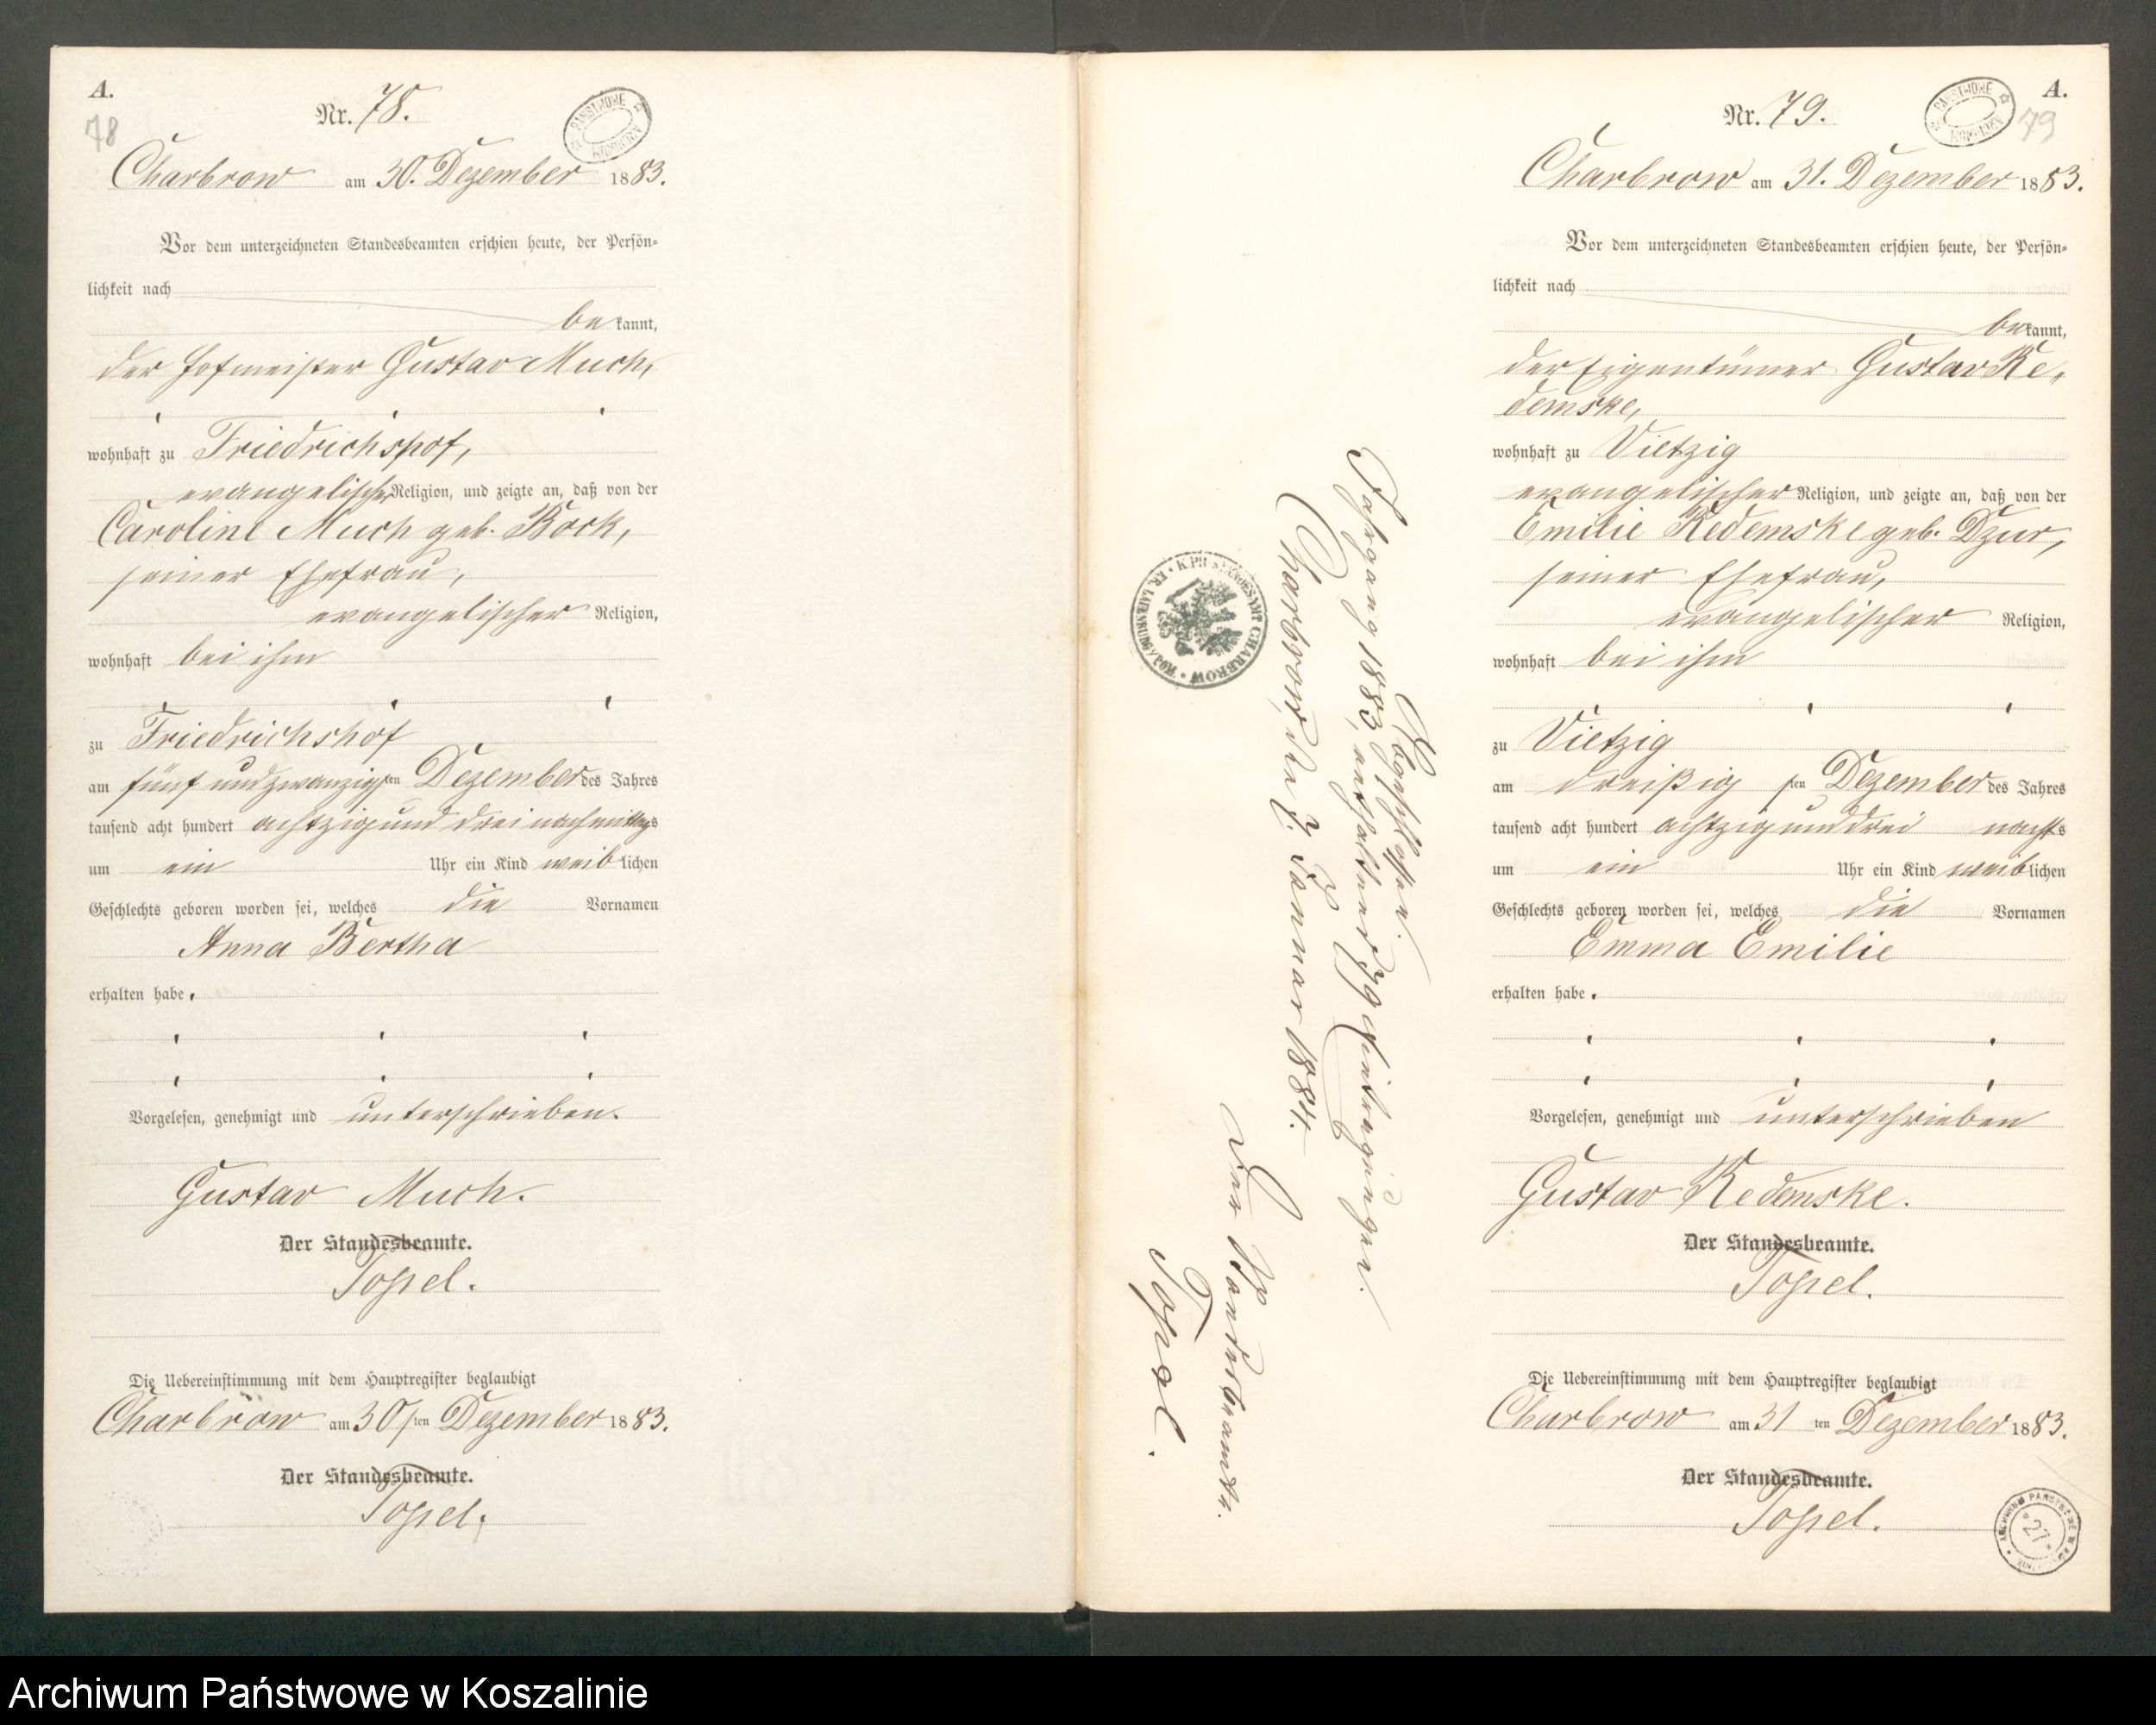 A.
78
Nr. 78.
PAŃSTWOWE ARCHIWUM
Charbrow am 30. Dezember 1883.
Vor dem unterzeichneten Standesbeamten erschien heute, der Persön=
lichkeit nach
be kannt,
der Hofmeister Gustav Much,
wohnhaft zu Friedrichshof,
evangelischer Religion, und zeigte an, daß von der
Caroline Much geb. Bock,
seiner Ehefrau,
evangelischer Religion,
wohnhaft bei ihm
zu Friedrichshof
am fünf und zwanzigsten Dezember des Jahres
tausend acht hundert achtzig und drei nachmittags
um ein Uhr ein Kind weiblichen
Geschlechts geboren worden sei, welches die Vornamen
Anna Bertha
erhalten habe.
Vorgelesen, genehmigt und unterschrieben.
Gustav Much.
Der Standesbeamte.
Topel.
Die Uebereinstimmung mit dem Hauptregister beglaubigt
Charbrow am 30sten Dezember 1883.
Der Standesbeamte.
Topel.
Abgeschlossen.
Jahrgang 1883, enthaltend 79 Eintragungen.
Charbrow, den 2. Januar 1884.
Der Standesbeamte.
Topel.
K. PR. STANDESAMT CHARBROW KR. LAUENBURG / POM.
A.
79
Nr. 79.
PAŃSTWOWE ARCHIWUM
Charbrow am 31. Dezember 1883.
Vor dem unterzeichneten Standesbeamten erschien heute, der Persön=
lichkeit nach
be kannt,
der Eigentümer Gustav Re,
demske,
wohnhaft zu Vietzig
evangelischer Religion, und zeigte an, daß von der
Emilie Redemske geb. Dzur,
seiner Ehefrau,
evangelischer Religion,
wohnhaft bei ihm
zu Vietzig
am dreißigsten Dezember des Jahres
tausend acht hundert achtzig und drei nachts
um ein Uhr ein Kind weiblichen
Geschlechts geboren worden sei, welches die Vornamen
Emma Emilie
erhalten habe.
Vorgelesen, genehmigt und unterschrieben
Gustav Redemske.
Der Standesbeamte.
Topel.
Die Uebereinstimmung mit dem Hauptregister beglaubigt
Charbrow am 31ten Dezember 1883.
Der Standesbeamte.
Topel.
ARCHIWUM PAŃSTWOWE W
27
Archiwum Państwowe w Koszalinie